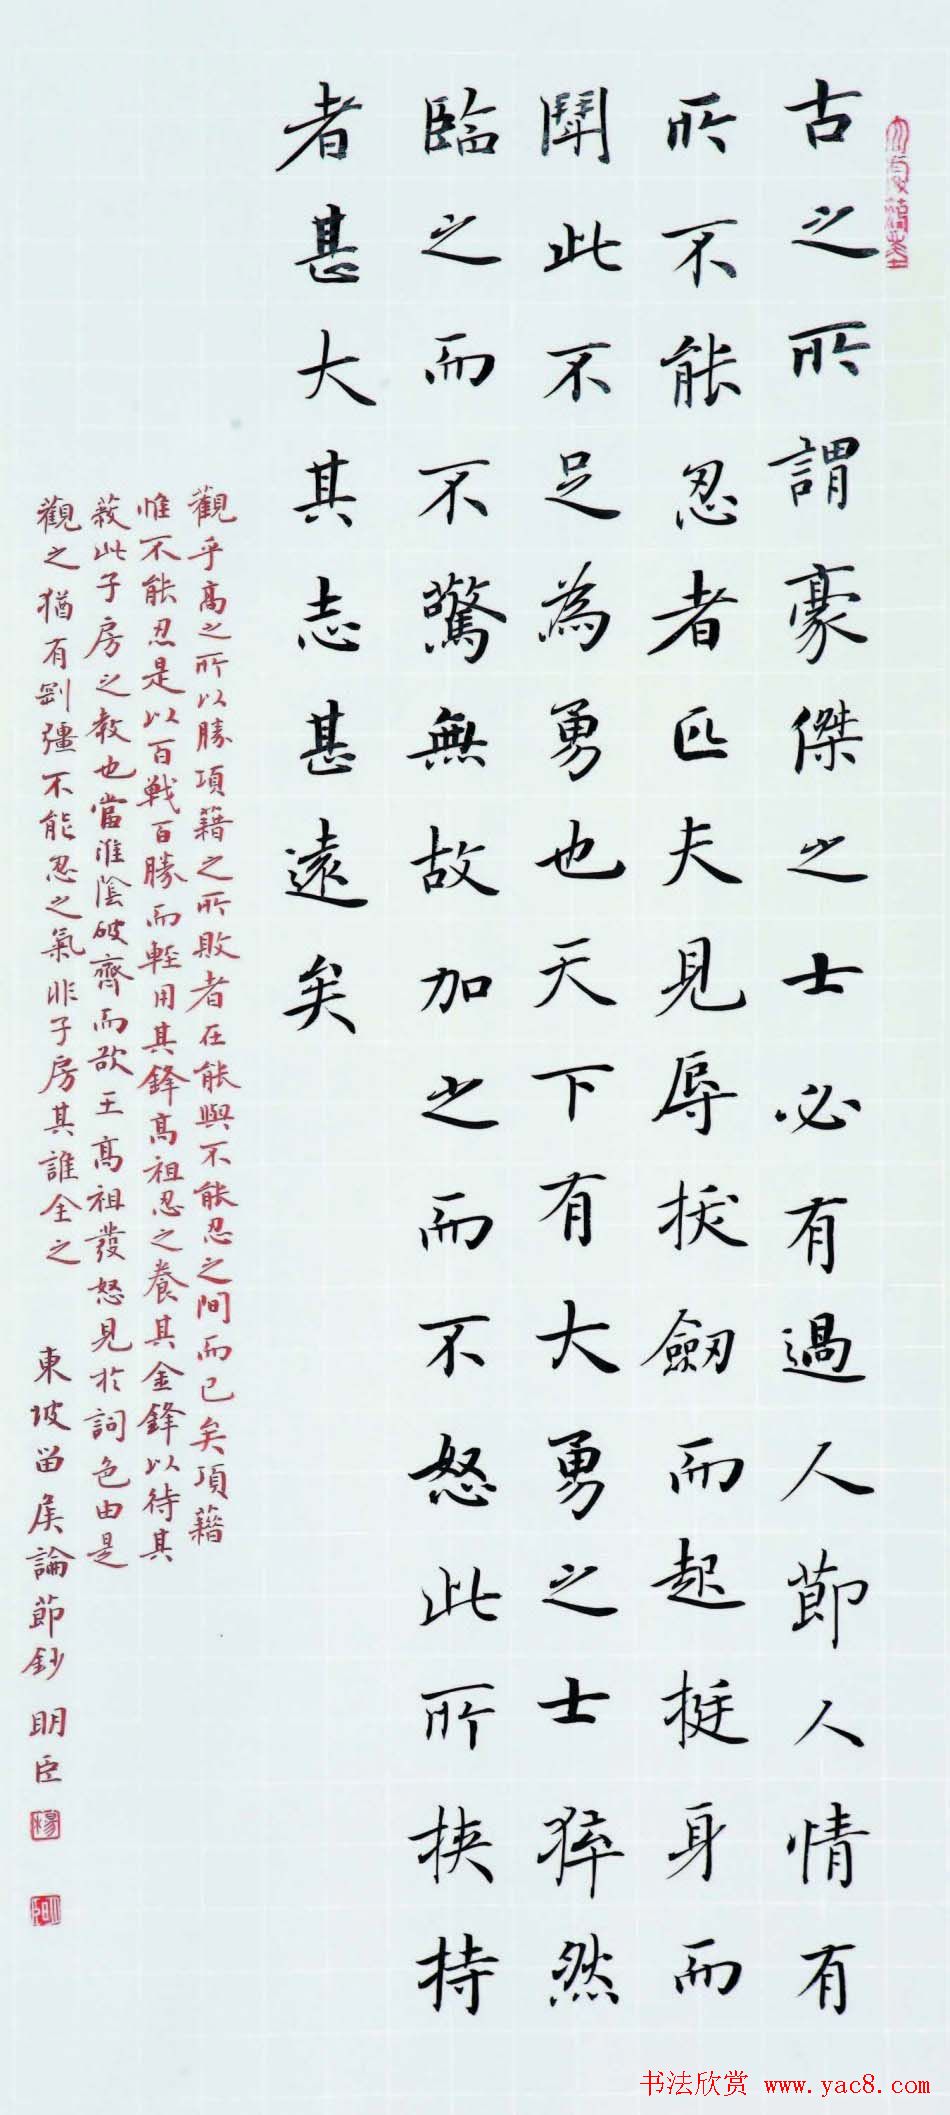 古之所謂豪傑之士必有過人節人情有
所不能忍者匹夫見辱拔劒而起挺身而
鬥此不足為勇也天下有大勇之士猝然
臨之而不驚無故加之而不怒此所挾持
者甚大其志甚遠矣
觀乎高之所以勝項籍之所敗者在能與不能忍之間而已矣項籍
惟不能忍是以百戰百勝而輕用其鋒高祖忍之養其金鋒以待其
蔽此子房之教也當淮陰破齊而欲王高祖發怒見於詞色由是
觀之猶有剛彊不能忍之氣非子房其誰全之 東坡留侯論節鈔 明臣
书法欣赏 www.yac8.com